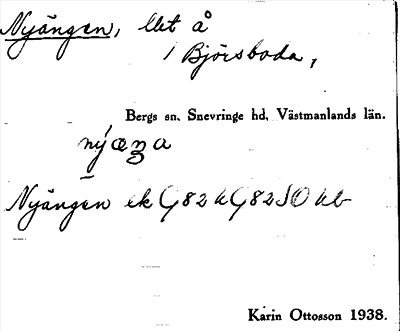 Nyängen, llet å
/ Björsboda,
Bergs sn. Snevringe hd. Västmanlands län.
Nyängen ek G82 h G82 SO hb
Karin Ottosson 1938.